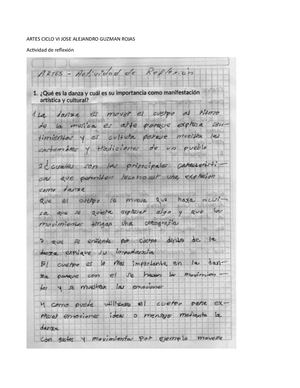 ARTES CICLO VI JOSE ALEJANDRO GUZMAN ROJAS
Actividad de reflexión
ARTES - Actividad de Reflexion
1. ¿Qué es la danza y cuál es su importancia como manifestación
artística y cultural?
La danza es mover el cuerpo al ritmo
de la musica es arte porque expresa sen-
timientos y el cultura porque muestra las
costumbres y tradiciones de un pueblo
2¿cuales son las principales caracteristi-
cas que permiten reconocer una expresion
como danza
Que el cuerpo se mueva que haya musi-
ca que se quiera expresar algo y que los
movimientos tengan una coreografia
3 que se entiende por cuerpo dentro de la
danza explique su importancia
El cuerpo es lo mas importante en la dan-
za porque con el se hacen los movimien-
tos y se muestran las emociones
4 como puede utilizarse el cuerpo para ex-
presar emociones ideas o mensaje mediante la
danza
Con gestos y movimientos por ejemplo moverse